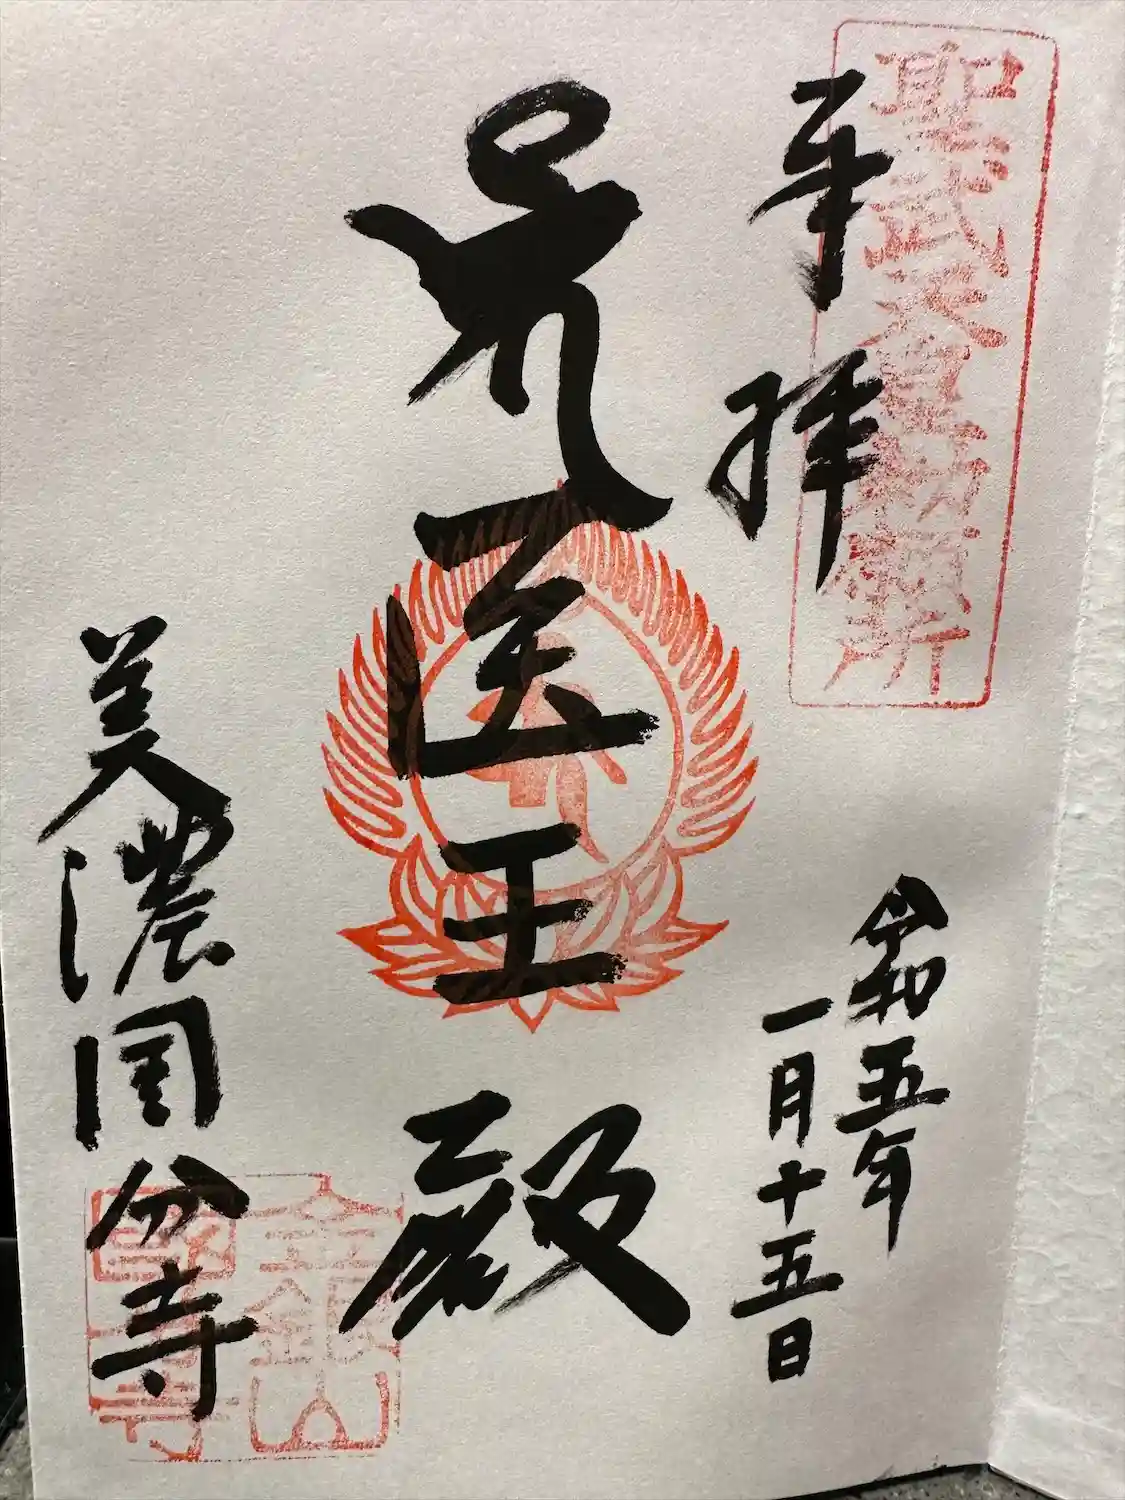 聖武天皇勅願所
奉拝
令和五年
一月十五日
医王殿
美濃国分寺
金銀山
国分寺